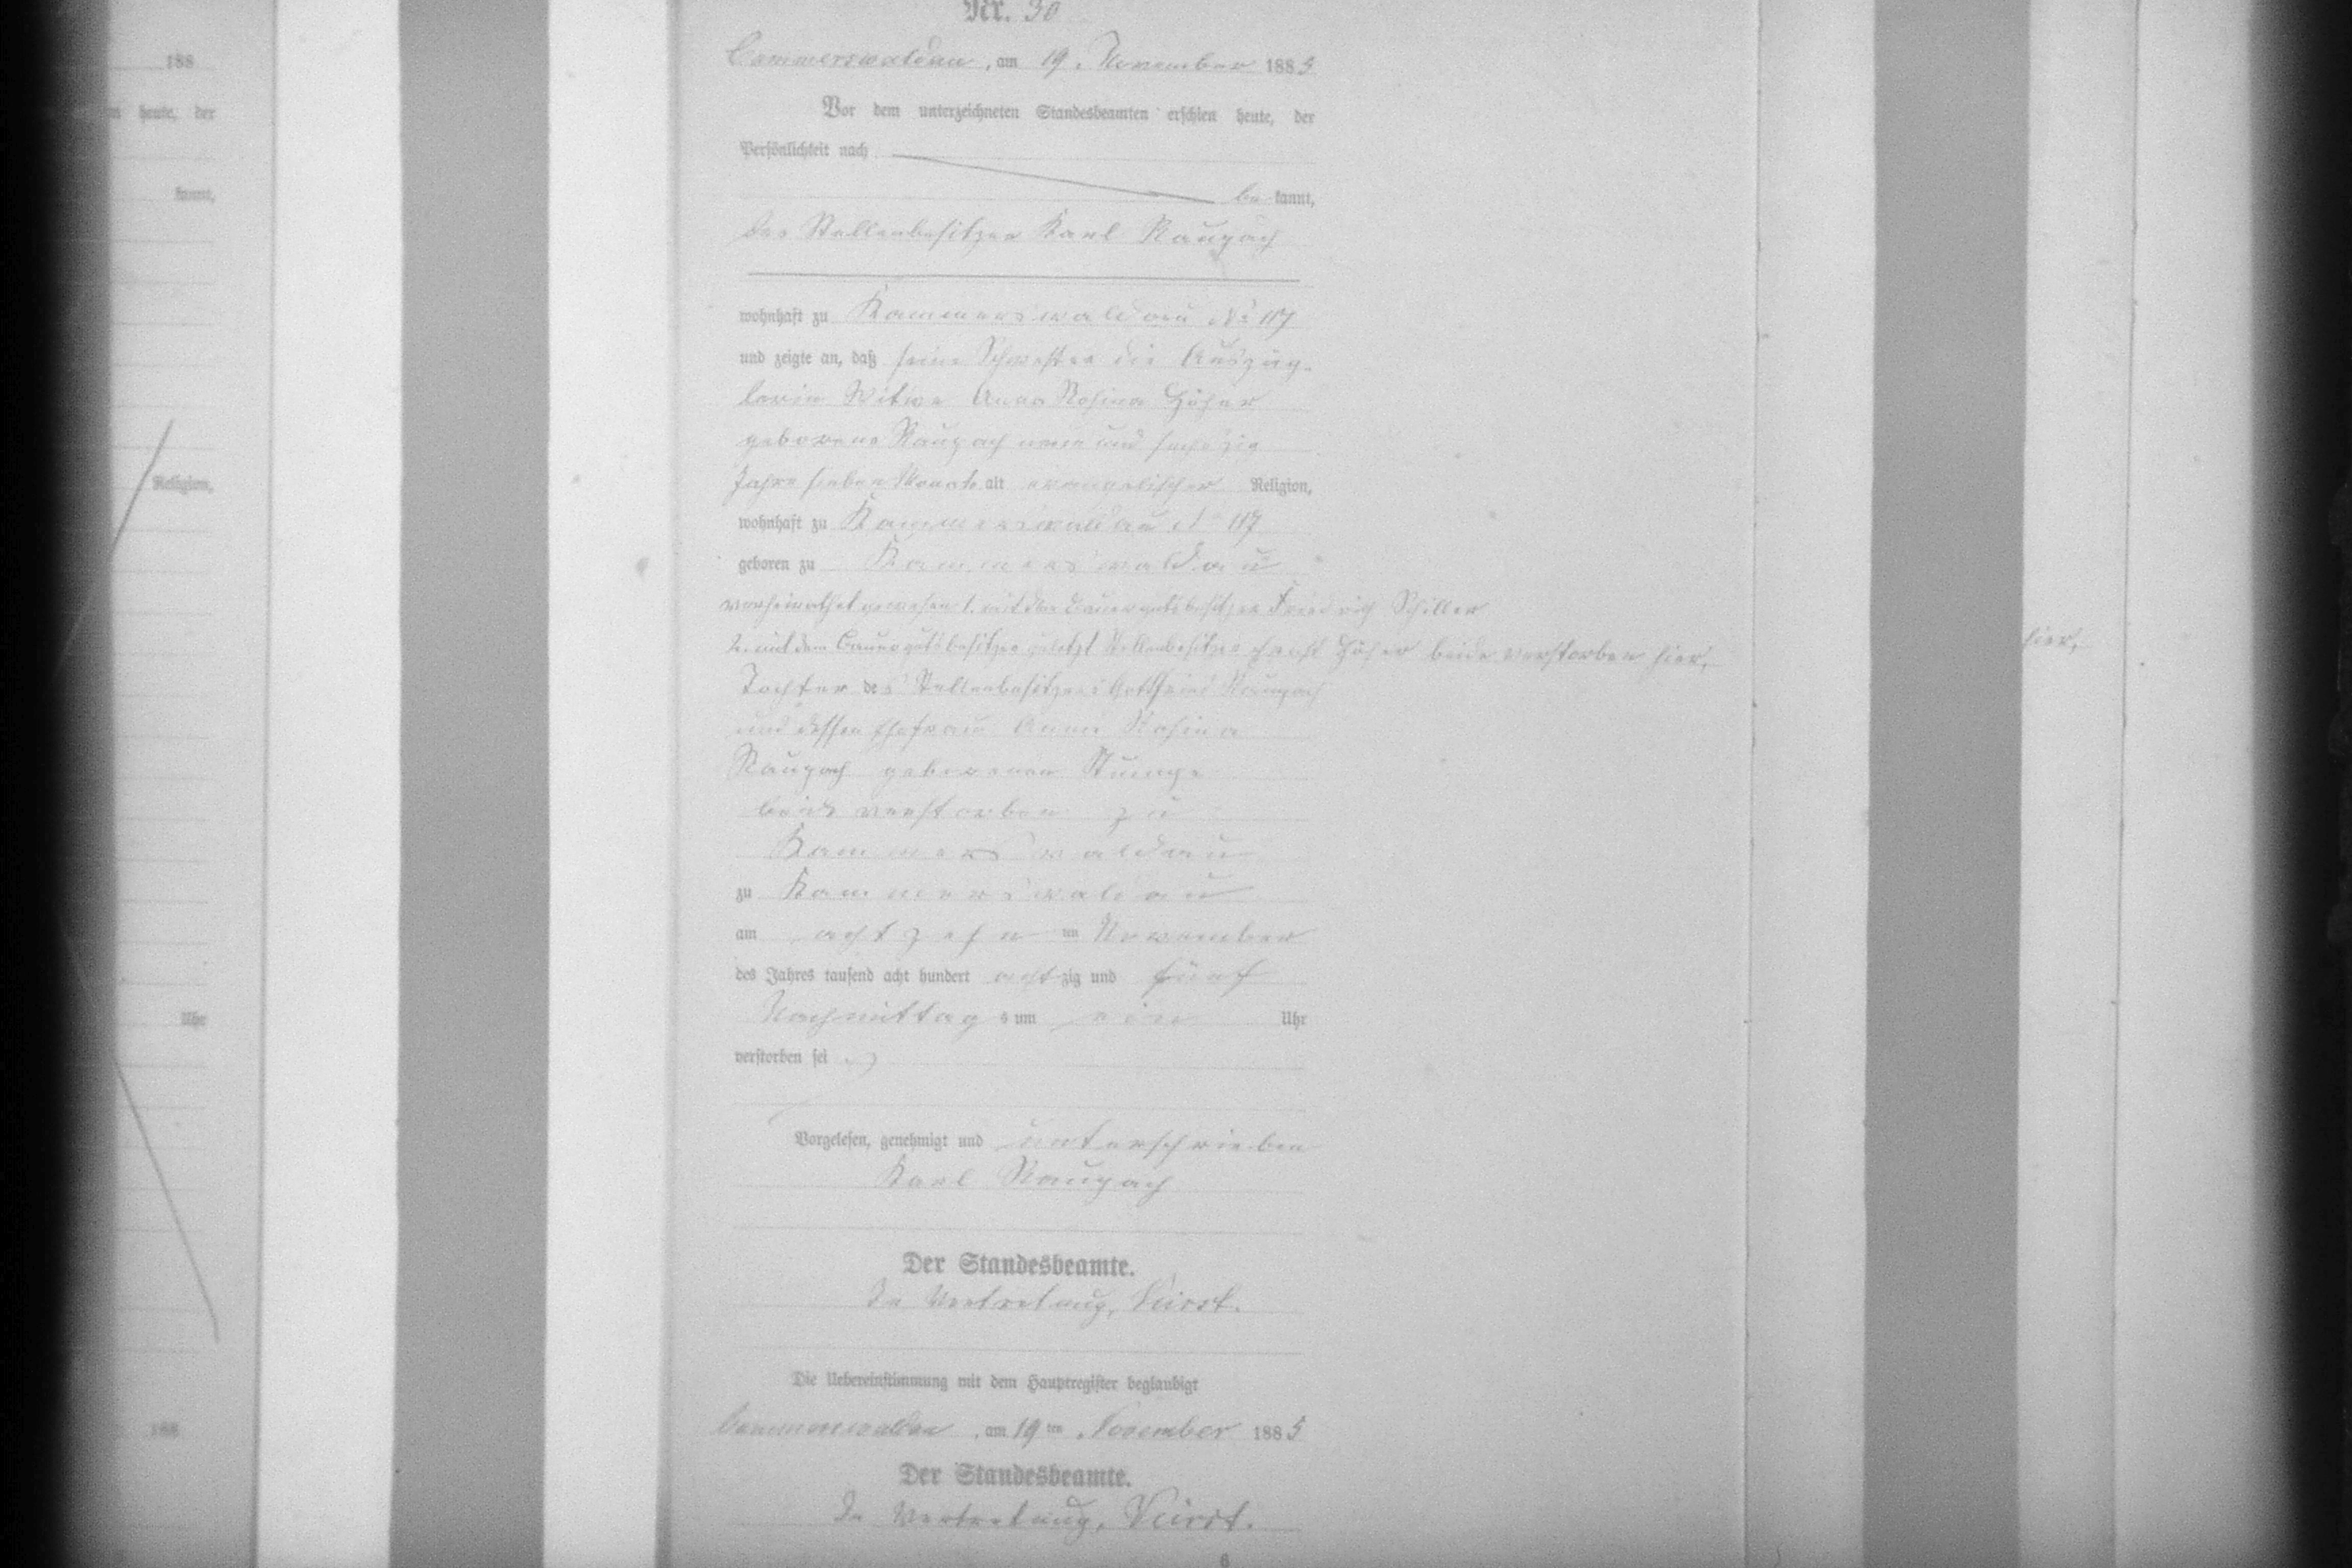 Nr. 30
Cammerswaldau, am 19. November 1885
Vor dem unterzeichneten Standesbeamten erschien heute, der
Persönlichkeit nach
be kannt,
der Stellenbesitzer Karl Raupach
wohnhaft zu Kammerswaldau No 117
und zeigte an, daß seine Schwester die Auszüg-
lerin Witwe Anna Rosina Höher
geborene Raupach neun und sechszig
Jahre sieben Monate alt evangelischer Religion,
wohnhaft zu Kammerswaldau No 117
geboren zu Kammerswaldau
verheirathet gewesen 1. mit dem Bauergutsbesitzer Friedrich Schiller
2. mit dem Bauergutsbesitzer zuletzt Stellenbesitzer Höher beide verstorben hier,
Tochter des Stellenbesitzers Gottfried Raupach
und dessen Ehefrau Anna Rosina
Raupach geborenen Stumpe
beide verstorben zu
Kammerswaldau
zu Kammerswaldau
am achtzehn ten November
des Jahres tausend acht hundert achtzig und fünf
Nachmittags um ein Uhr
verstorben sei
Vorgelesen, genehmigt und unterschrieben
Karl Raupach
Der Standesbeamte.
In Vertretung,
Die Uebereinstimmung mit dem Hauptregister beglaubigt
Cammerswaldau, am 19ten November 1885
Der Standesbeamte.
In Vertretung,
6
188
heute, der
kannt,
Religion,
Uhr
188
hier,